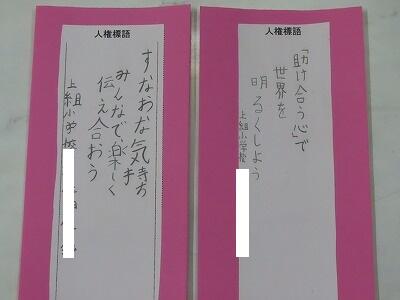 人権標語
すなおな気持ち
みんなで、楽しく
伝え合おう
上組小学校
人権標語
「助け合う心」で
世界を
明るくしよう
上組小学校